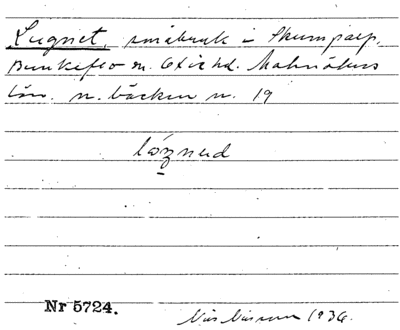 Lugnet, småbruk i Skumparp,
Bunkeflo sn. Oxie hd. Malmöhus
län. n. bäcken n. 19
lóznud
Nr 5724.
1936.